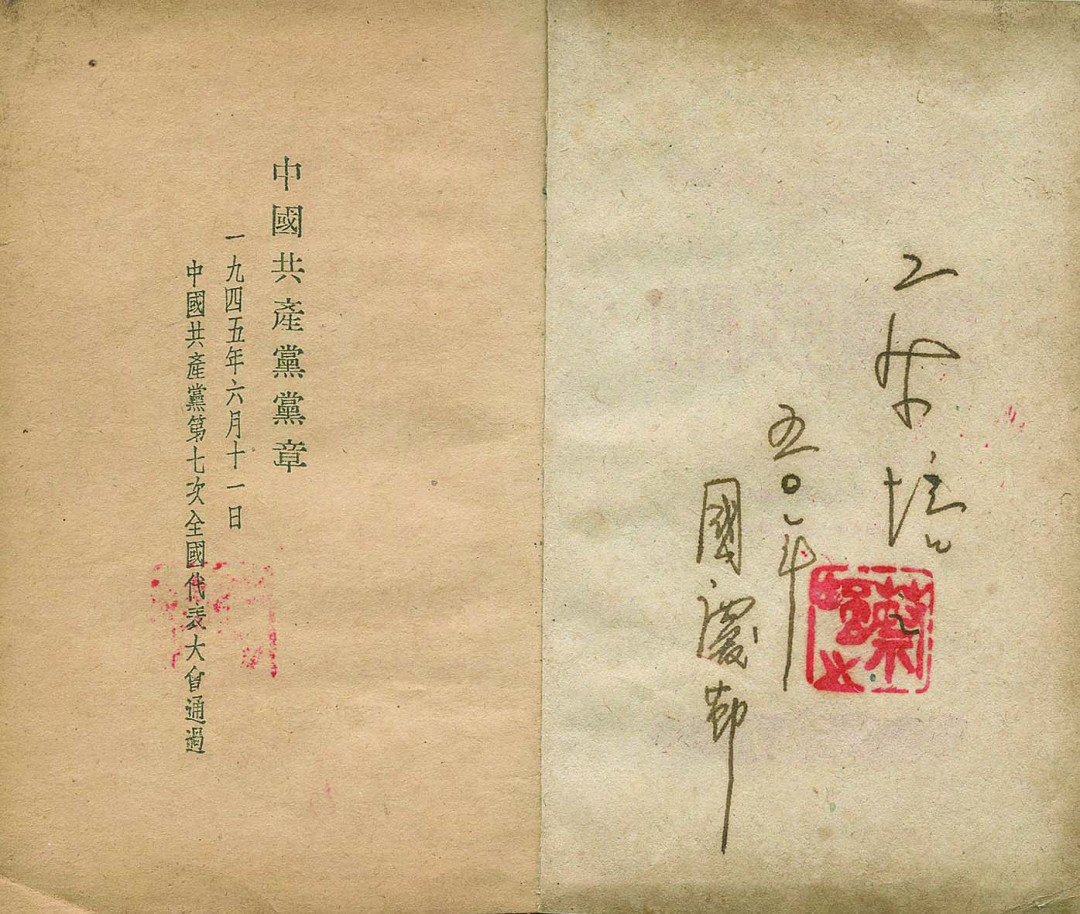 五〇年
國慶節
中國共產黨黨章
一九四五年六月十一日
中國共產黨第七次全國代表大會通過